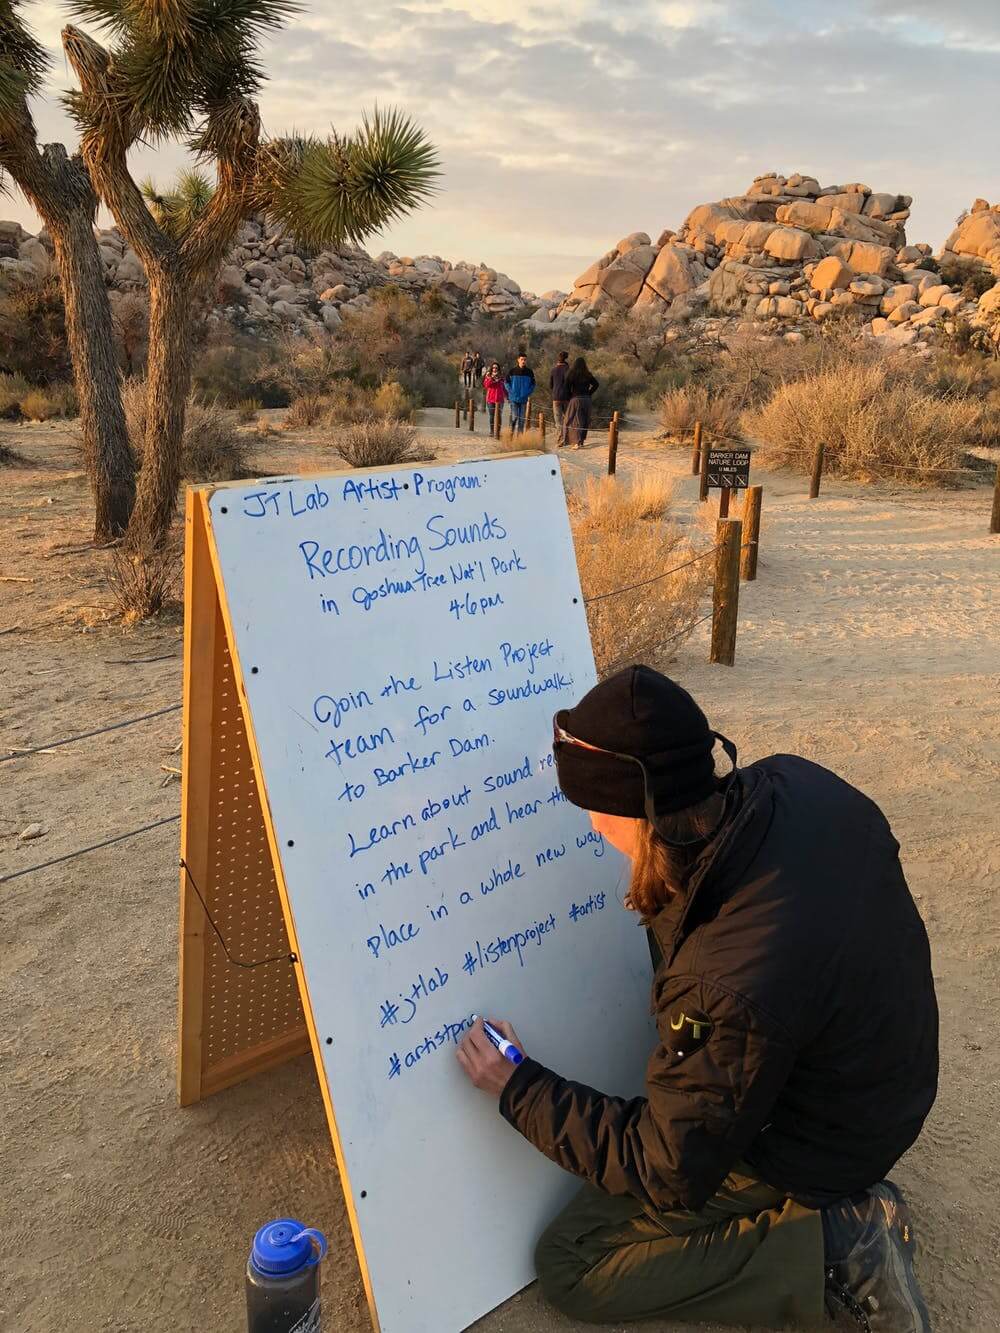 JT Lab Artist Program:
Recording Sounds
in Joshua Tree Nat'l Park
4-6pm
Join the Listen Project
team for a soundwalk
to Barker Dam.
Learn about sound
in the park and hear
place in a whole new way
#jtlab #listenproject #artist
#artistpr
BARKER DAM
NATURE LOOP
JT